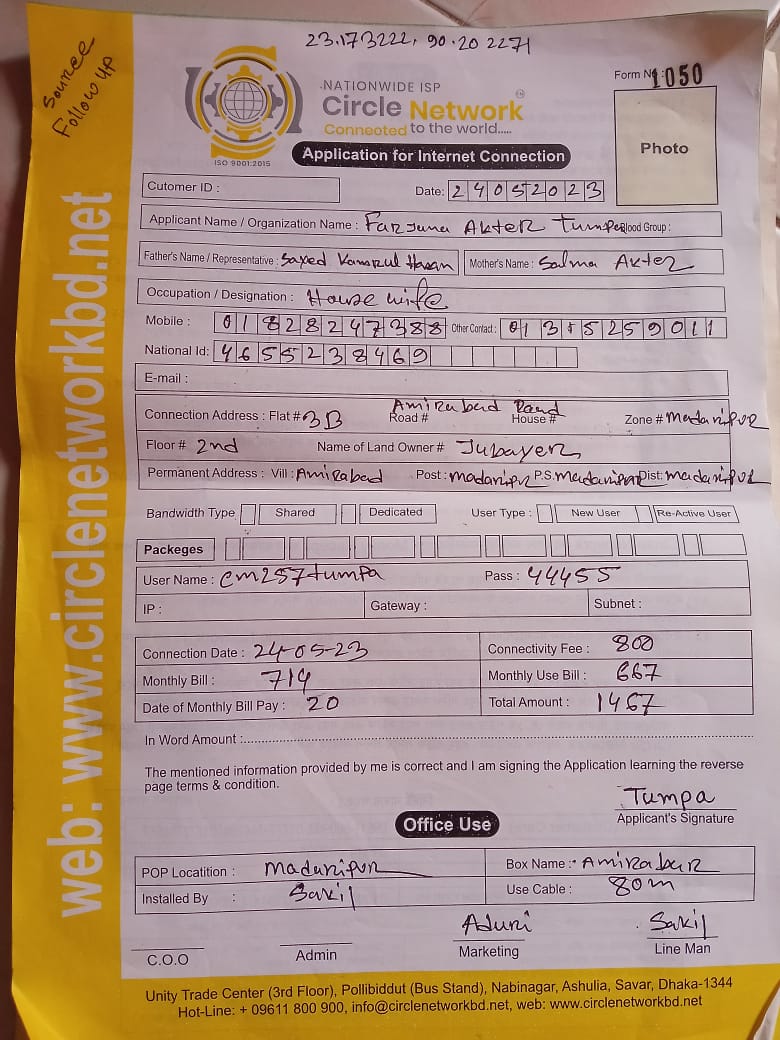 23.173222, 90.202271
Source
Follow up
Form No : 1050
NATIONWIDE ISP
Circle Network
Connected to the world.....
ISO 9001:2015
Application for Internet Connection
Photo
Cutomer ID :
Date: 24052023
Applicant Name / Organization Name : Farjana Akter Tumpa Blood Group :
Father's Name / Representative : Sayed Kamrul Hasan Mother's Name : Salma Akter
Occupation / Designation : House wife
Mobile : 01828247388 Other Contact :
National Id: 4655238469
E-mail :
Connection Address : Flat # 3B Road # Amirabad Road House # Zone # Madaripur
Floor # 2nd Name of Land Owner # Jubayer
Permanent Address : Vill : Amirabad Post : Madaripur P.S. Madaripur Dist: Madaripur
Bandwidth Type Shared Dedicated User Type : New User Re-Active User
Packeges
User Name : cm257tumpa Pass : 44455
IP : Gateway : Subnet :
Connection Date : 24-05-23 Connectivity Fee : 800
Monthly Bill : 714 Monthly Use Bill : 667
Date of Monthly Bill Pay : 20 Total Amount : 1467
In Word Amount :
The mentioned information provided by me is correct and I am signing the Application learning the reverse
page terms & condition.
Tumpa
Applicant's Signature
Office Use
POP Locatition : Madaripur Box Name : Amirabad
Installed By : Sakil Use Cable : 80m
Aduri Sakil
C.O.O Admin Marketing Line Man
Unity Trade Center (3rd Floor), Pollibiddut (Bus Stand), Nabinagar, Ashulia, Savar, Dhaka-1344
Hot-Line: + 09611 800 900, info@circlenetworkbd.net, web: www.circlenetworkbd.net
web: www.circlenetworkbd.net